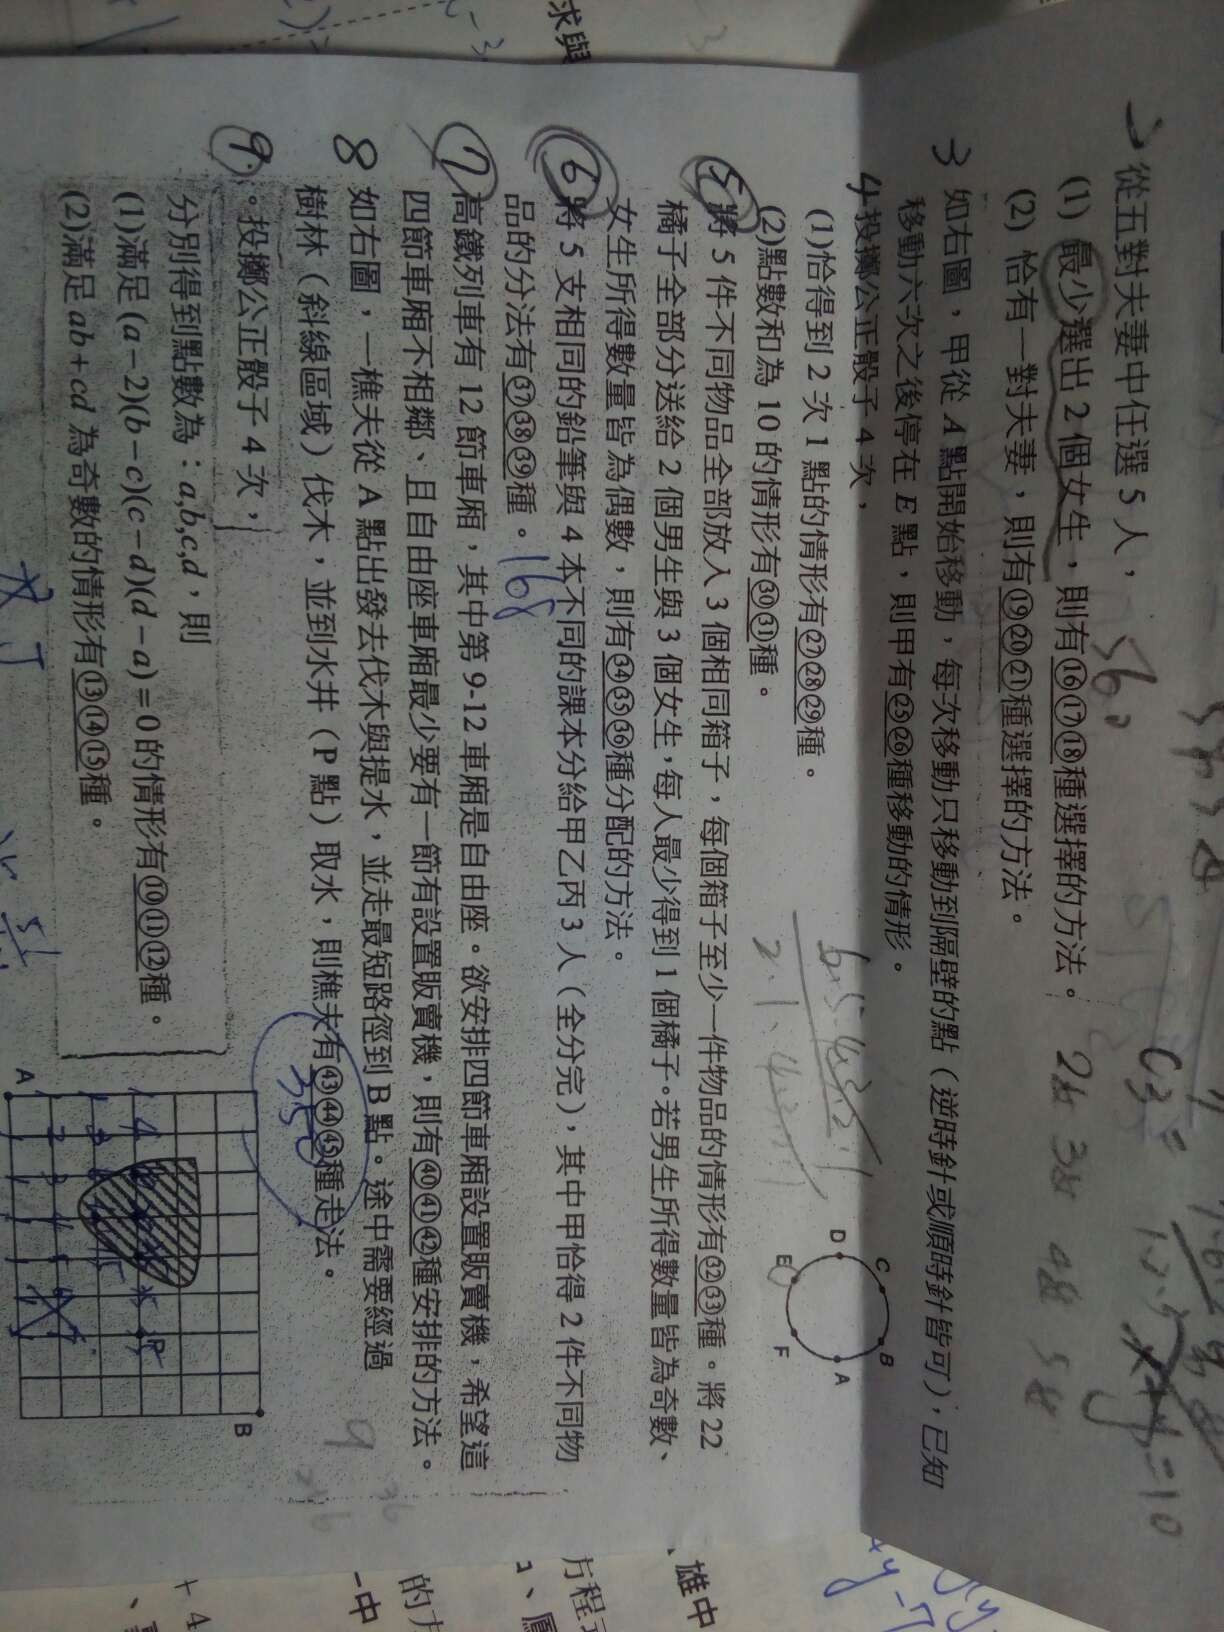 求與
從五對夫妻中任選 5 人，
(1) 最少選出 2 個女生，則有⑯⑰⑱種選擇的方法。
(2) 恰有一對夫妻，則有⑲⑳㉑種選擇的方法。
560
3 如右圖，甲從 A 點開始移動，每次移動只移動到隔壁的點（逆時針或順時針皆可），已知
移動六次之後停在 E 點，則甲有㉕㉖種移動的情形。
4 投擲公正骰子 4 次，
(1)恰得到 2 次 1 點的情形有㉗㉘㉙種。
(2)點數和為 10 的情形有㉚㉛種。
A
B
C
D
E
F
5 將 5 件不同物品全部放入 3 個相同箱子，每個箱子至少一件物品的情形有㉜㉝種。將 22
橘子全部分送給 2 個男生與 3 個女生，每人最少得到 1 個橘子。若男生所得數量皆為奇數、
女生所得數量皆為偶數，則有㉞㉟㊱種分配的方法。
6 將 5 支相同的鉛筆與 4 本不同的課本分給甲乙丙 3 人（全分完），其中甲恰得 2 件不同物
品的分法有㊲㊳㊴種。168
7 高鐵列車有 12 節車廂，其中第 9-12 車廂是自由座。欲安排四節車廂設置販賣機，希望這
四節車廂不相鄰、且自由座車廂最少要有一節有設置販賣機，則有㊵㊶㊷種安排的方法。
8 如右圖，一樵夫從 A 點出發去伐木與提水，並走最短路徑到 B 點。途中需要經過
樹林（斜線區域）伐木，並到水井（P 點）取水，則樵夫有㊸㊹㊺種走法。
350
A
P
B
9 。投擲公正骰子 4 次，
分別得到點數為：a,b,c,d，則
(1)滿足 (a－2)(b－c)(c－d)(d－a)＝0 的情形有⑩⑪⑫種。
(2)滿足 ab＋cd 為奇數的情形有⑬⑭⑮種。
、雄中
方程
的方
一中